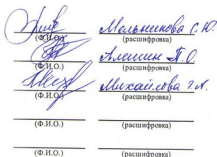 Мельникова С.Ю.
(Ф.И.О.) (расшифровка)
Алешин П.О.
(Ф.И.О.) (расшифровка)
Михайлова Г.А.
(Ф.И.О.) (расшифровка)
(Ф.И.О.) (расшифровка)
(Ф.И.О.) (расшифровка)